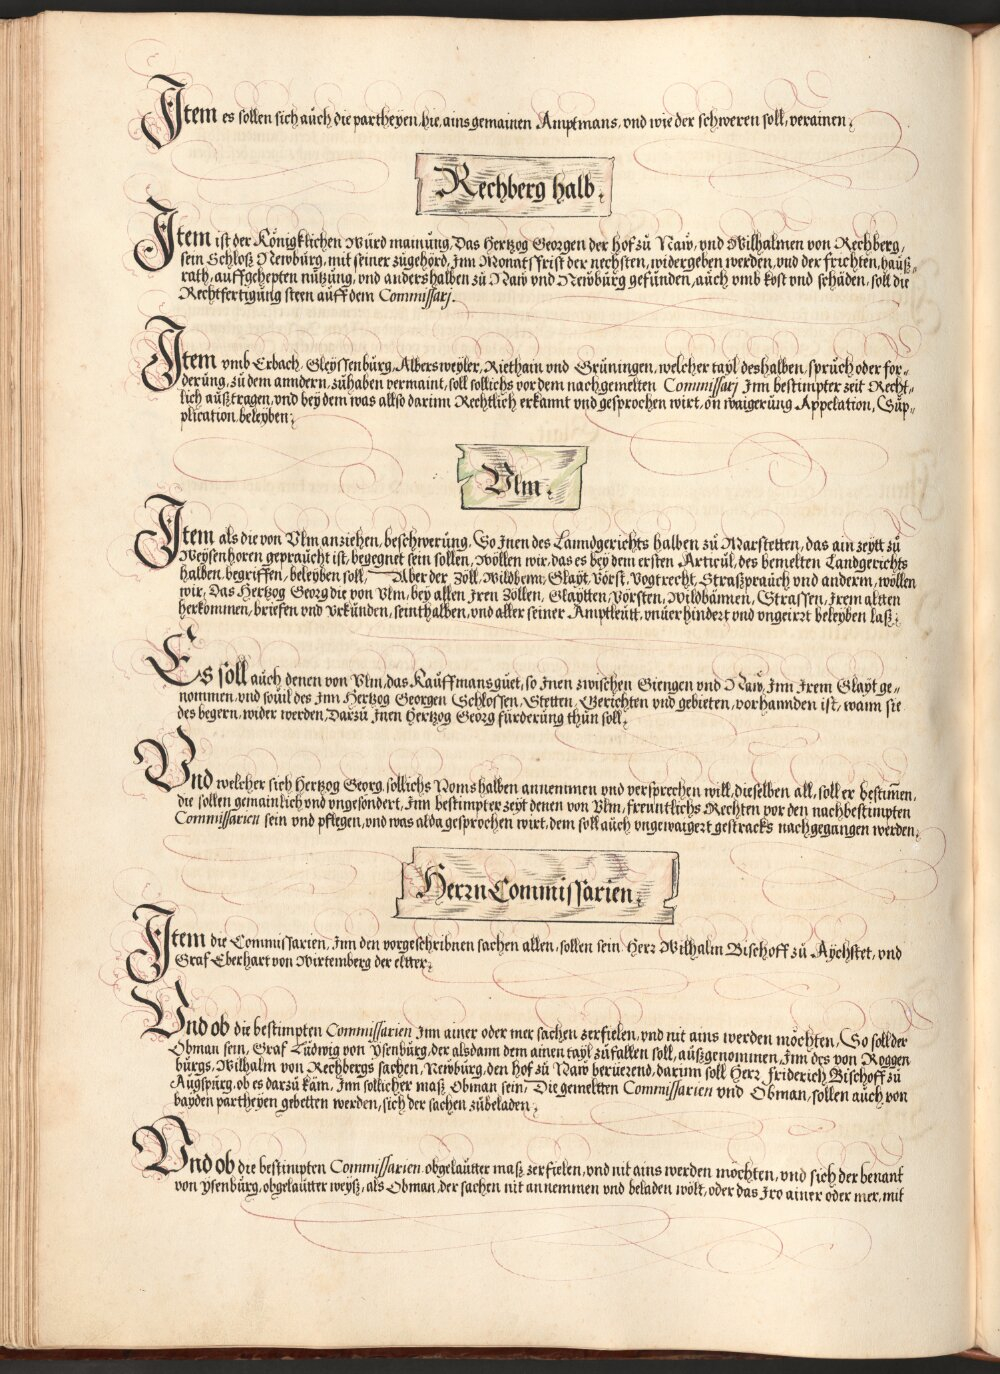 Item es sollen sich auch die partheyen hie, ains gemainen Amptmans, vnd wie der schweren soll, verainen.
Rechberg halb.
Item ist der Königklichen würd mainung, Das Hertzog Georgen der hof zu Naw, vnd Wilhalmen von Rechberg,
sein Schloß Newburg, mit seiner zugehörd, Inn Monats frist der nechsten, widergeben werden, vnd der früchten, hauß-
rath, auffgehepten nutzung, vnd anders halben zu Naw vnd Newburg gefunden, auch vmb kost vnd schäden, soll die
Rechtfertigung steen auff dem Commissarj.
Item vmb Erbach, Gleyssenburg, Albersweyler, Riethain vnd Grüningen, welcher tayl deshalben, spruch oder for-
derung, zu dem anndern, zuhaben vermaint, soll sollichs vor dem nachgemelten Commissarj Inn bestimpter zeit Recht-
lich außtragen, vnd bey dem was allso darinn Rechtlich erkannt vnd gesprochen wirt, on waigerung Appelation, Sup-
plication beleyben.
Vlm.
Item als die von Vlm anziehen, beschwerung, So Inen des Lanndgerichts halben zu Marstetten, das ain zeytt zu
Weysenhoren gepraucht ist, begegnet sein sollen, Wöllen wir, das es bey dem ersten Articul, des bemelten Landgerichts
halben, begriffen, beleyben soll, Aber der Zoll, Wildbenn, Glayt, Vorst, Vogtrecht, Straßprauch vnd anderm, wöllen
wir, Das Hertzog Georg die von Vlm, bey allen Iren Zöllen, Glaytten, Vorsten, Wildbännen, Strassen, Irem altten
herkommen, briefen vnd vrkunden, seinthalben, vnd aller seiner Amptleütt, vnuerhindert vnd vngeirrt beleyben laß.
Es soll auch denen von Vlm, das Kauffmansguet, so Inen zwischen Giengen vnd Naw, Inn Irem Glayt ge-
nommen, vnd souil des Inn Hertzog Georgen Schlossen, Stetten, Gerichten vnd gebieten, vorhannden ist, wann sie
des begern, wider werden, Darzu Inen Hertzog Georg fürderung thun soll.
Vnd welcher sich Hertzog Georg, sollichs Noms halben annemmen vnd versprechen will, dieselben all, soll er bestimen,
die sollen gemainlich vnd vngesondert, Inn bestimpter zeyt denen von Vlm, freuntlichs Rechten vor den nachbestimpten
Commissarien sein vnd pflegen, vnd was alda gesprochen wirt, dem soll auch vngewaigert gestracks nachgegangen werden.
Herrn Commissarien.
Item die Commissarien, Inn den vorgeschribnen sachen allen, sollen sein Herr Wilhalm Bischoff zu Aychstet, vnd
Graf Eberhart von Wirtemberg der eltter.
Vnd ob die bestimpten Commissarien Inn ainer oder mer sachen zerfielen, vnd nit ains werden möchten, So soll der
Obman sein, Graf Ludwig von Ysenburg, der alsdann dem ainen tayl zufallen soll, außgenommen, Inn des von Roggen
burgs, Wilhalm von Rechbergs sachen, Newburg, den hof zu Naw beruerend, darinn soll Herr Friderich Bischoff zu
Augspurg, ob es darzu käm, Inn sollicher maß Obman sein, Die gemeltten Commissarien vnd Obman, sollen auch von
bayden partheyen gebetten werden, sich der sachen zubeladen.
Vnd ob die bestimpten Commissarien obgelautter maß zerfielen, vnd nit ains werden möchten, vnd sich der benant
von Ysenburg, obgelautter weyß, als Obman, der sachen nit annemmen vnd beladen wölt, oder das Iro ainer oder mer, mit